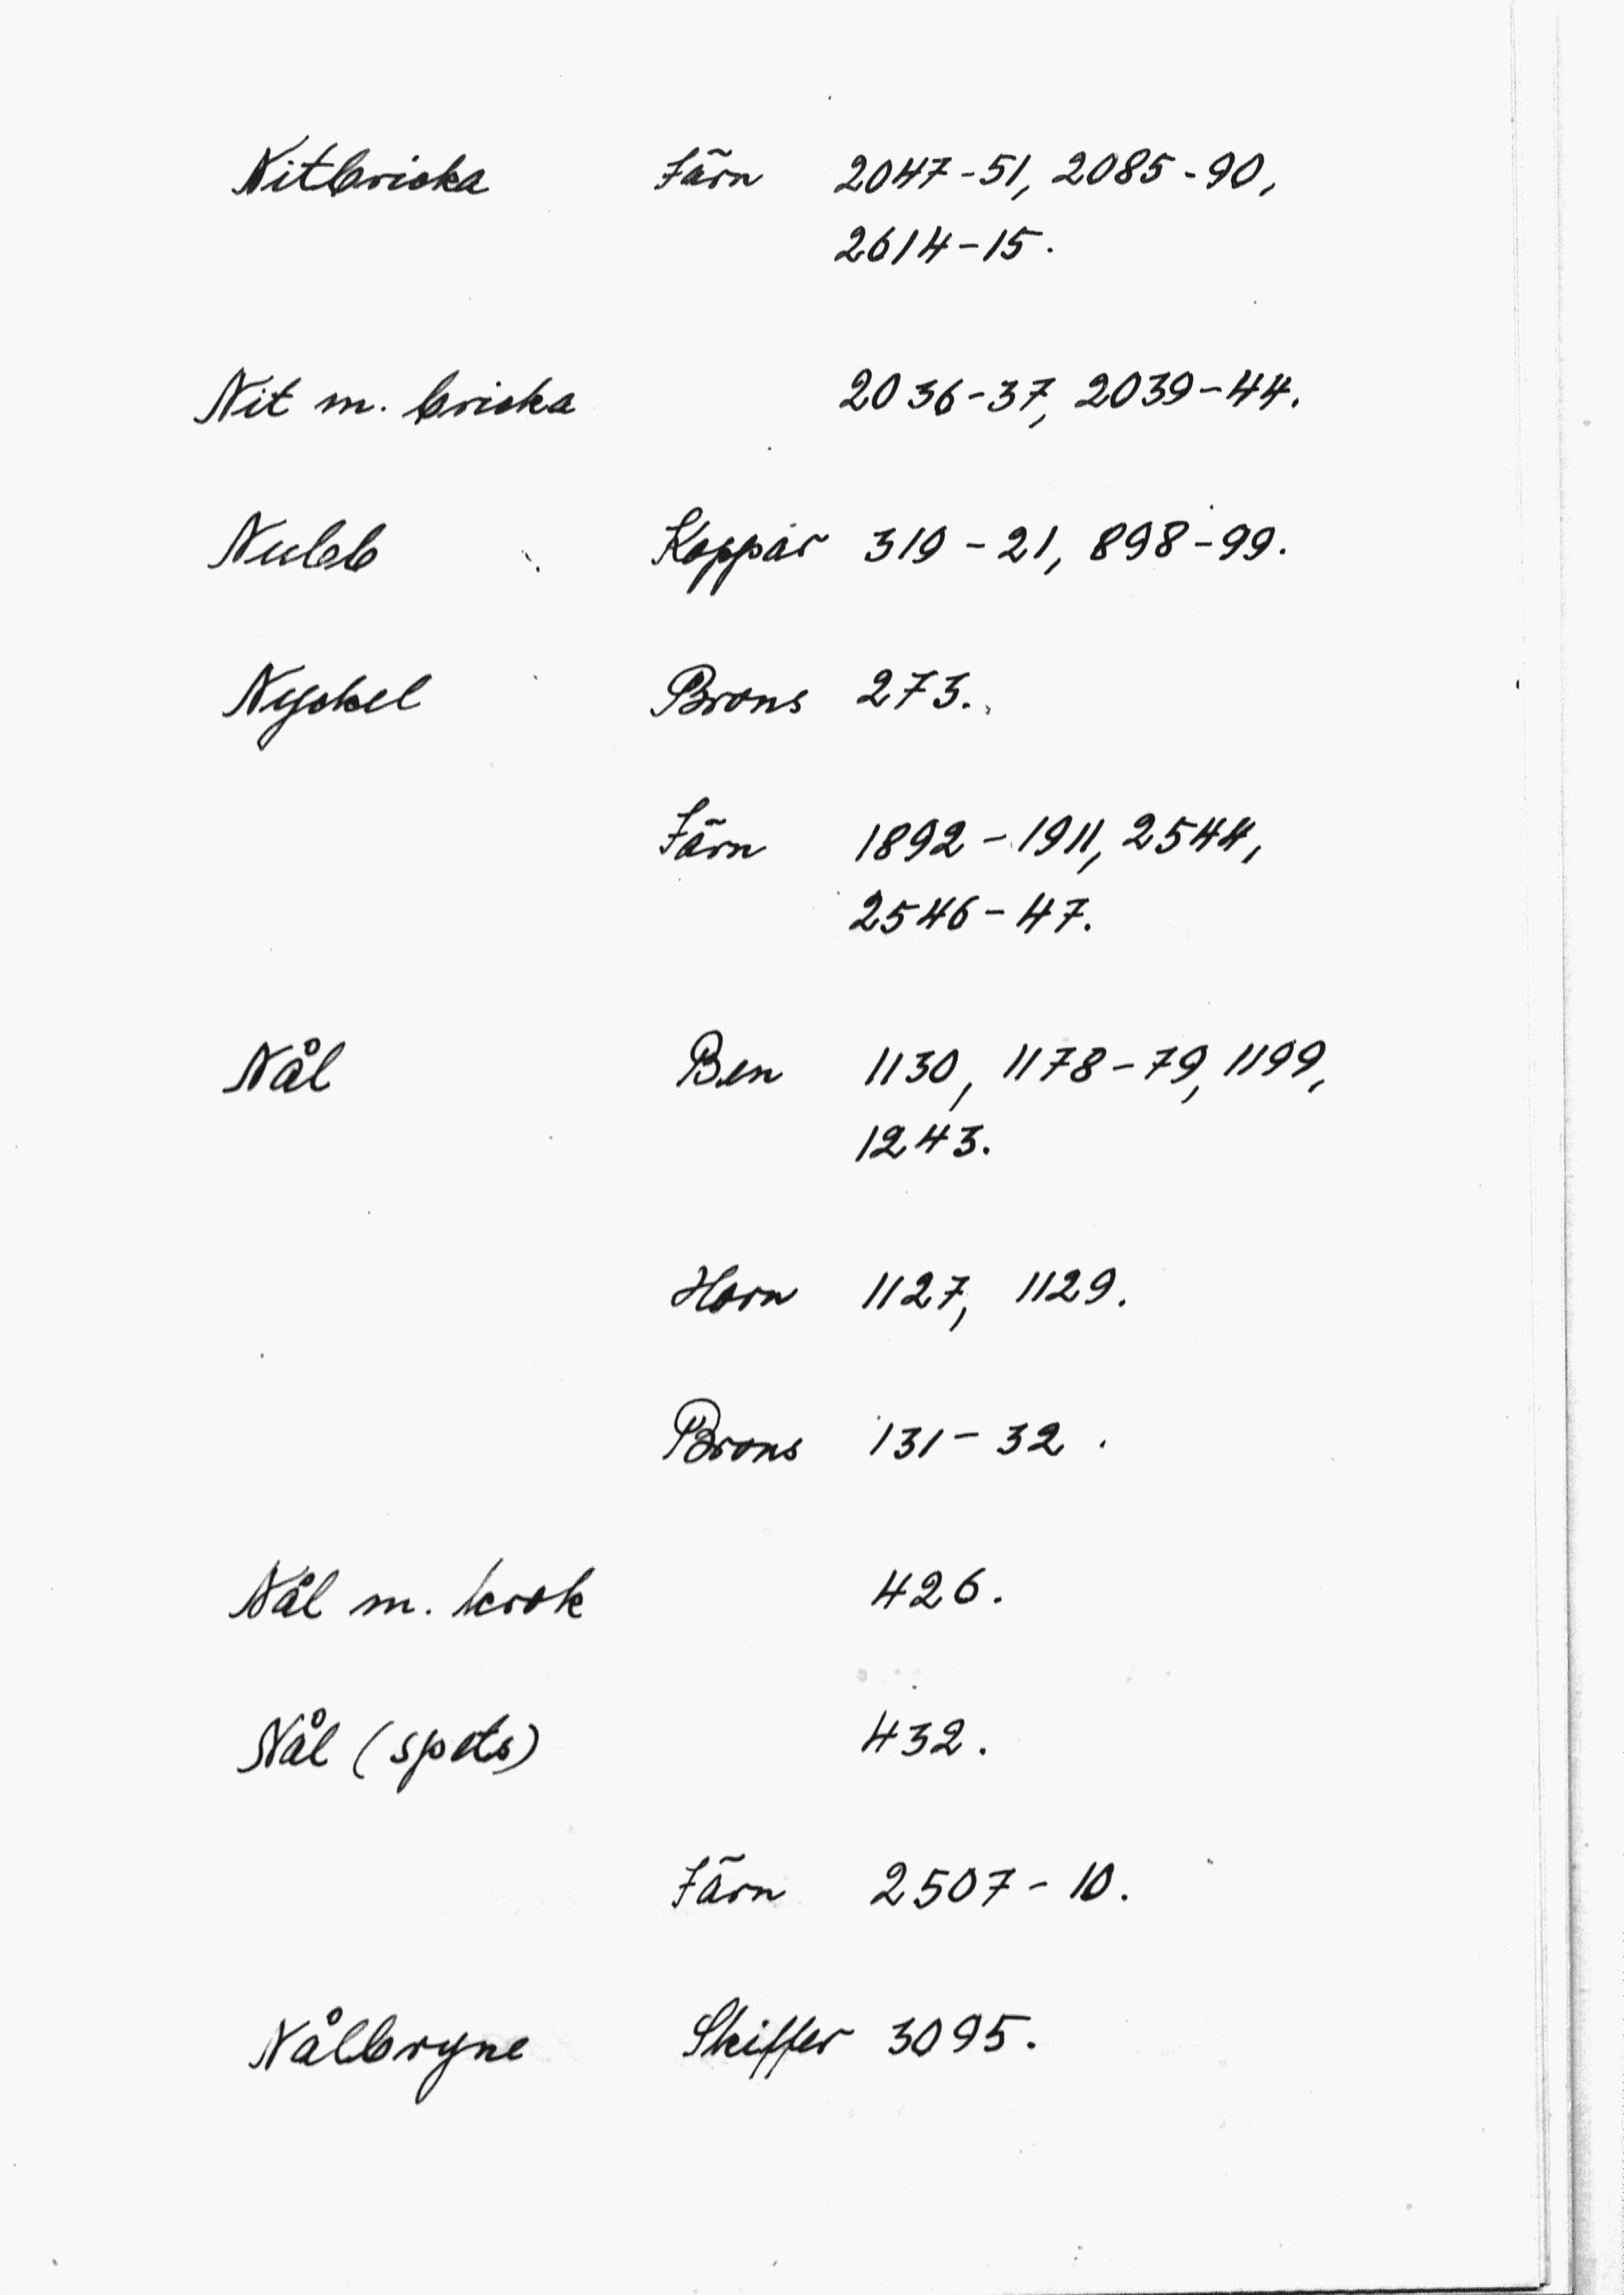 Nitbricka Järn 2047-51, 2085-90,
2614-15.
Nit m. bricka 2036-37, 2039-44.
Nubb Koppar 319-21, 898-99.
Nyckel Brons 273.
Järn 1892-1911, 2544,
2546-47.
Nål Ben 1130, 1178-79, 1199,
1243.
Horn 1127, 1129.
Brons 131-32.
Nål m. krok 426.
Nål (spets) 432.
Järn 2507-10.
Nålbryne Skiffer 3095.